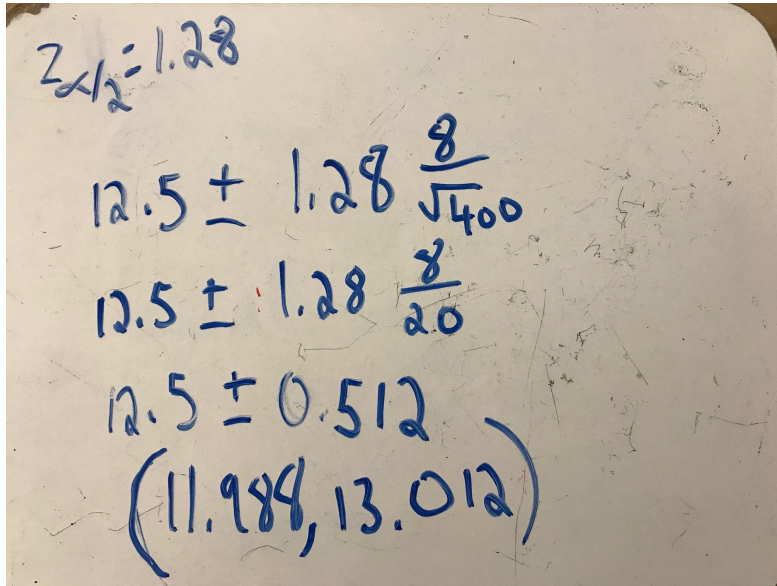 z α/2 = 1.28
12.5 ± 1.28 8/√400
12.5 ± 1.28 8/20
12.5 ± 0.512
(11.988, 13.012)